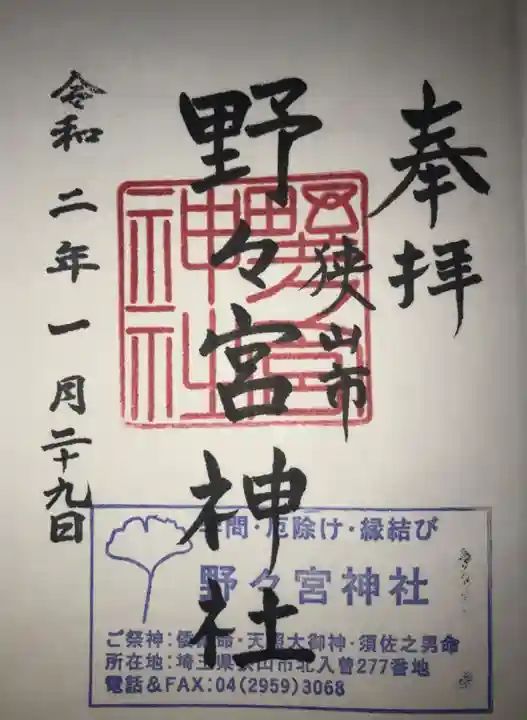 奉拝
狭山市
野々宮神社
令和二年一月二十九日
野宮神社
学問・厄除け・縁結び
野々宮神社
ご祭神:倭 命・天照大御神・須佐之男命
所在地:埼玉県狭山市北入曽277番地
電話&FAX:04(2959)3068